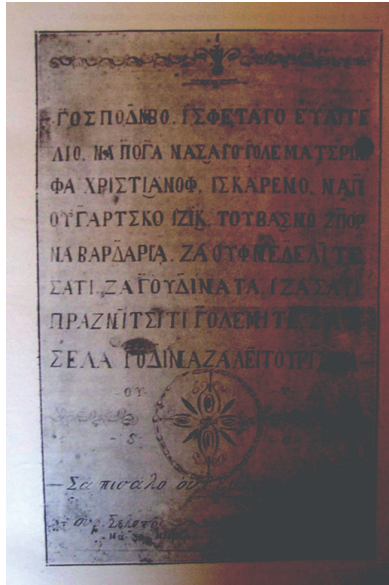 ΓΟΣΠΟΔΝΒΟ. ΙΣΦΕΤΑΓΟ ΕΥΑΓΓΕ
ΛΙΟ. ΝΑ ΠΟΓΑ ΝΑΣΑΓΟ ΓΟΛΕΜΑ ΤΣΕΡΚ
ΦΑ ΧΡΙΣΤΙΑΝΟΦ. ΙΣΚΑΡΕΝΟ. ΝΑ Π
ΟΥΓΑΡΤΣΚΟ ΙΖΙΚ. ΤΟΥΒΑΣΝΟ ΖΠΟΡ
ΝΑ ΒΑΡΔΑΡΙΑ. ΖΑ ΟΥΦ ΝΕΔΕΛΙΤΕ
ΣΑΤΙ. ΖΑ ΓΟΥΔΙΝΑΤΑ. Ι ΖΑ ΣΑΤΙ
ΠΡΑΖΝΙΤΣΙΤΙ ΓΟΛΕΜΙΤΕ.
ΣΕΛΑ ΓΟΔΙΝΑ ΖΑ ΛΕΙΤΟΥΡΓΙΑ
Σα πισαλο ουφ